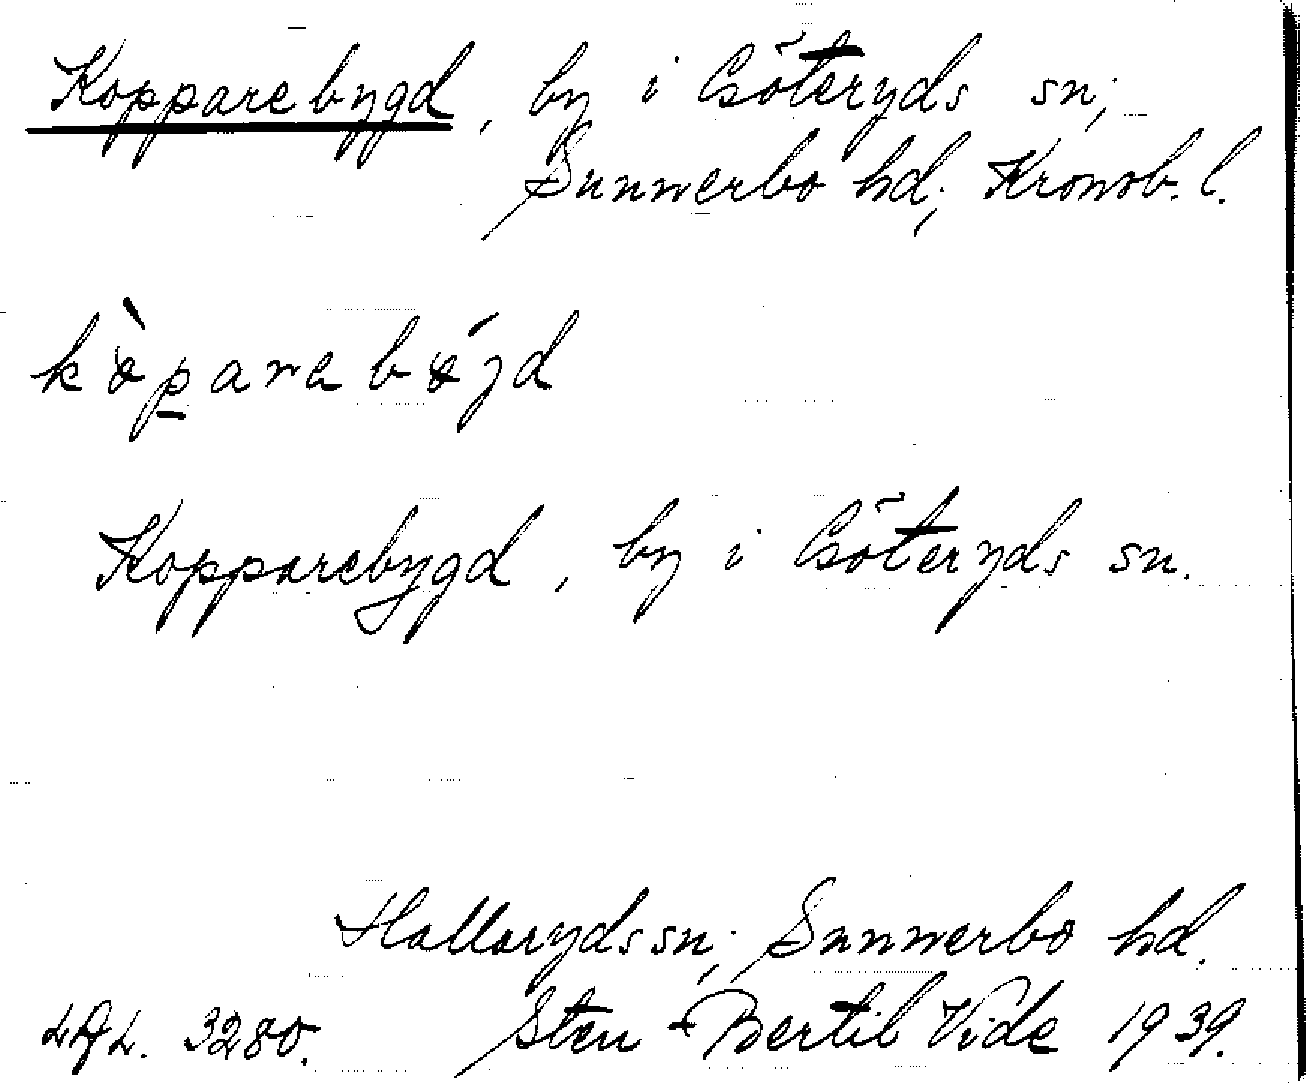 Kopparebygd, by i Göteryds sn;
Sunnerbo hd; Kronob. l.
Kopparebygd, by i Göteryds sn.
Hallaryds sn; Sunnerbo hd.
LAL. 3280. Sten-Bertil Vide 1939.